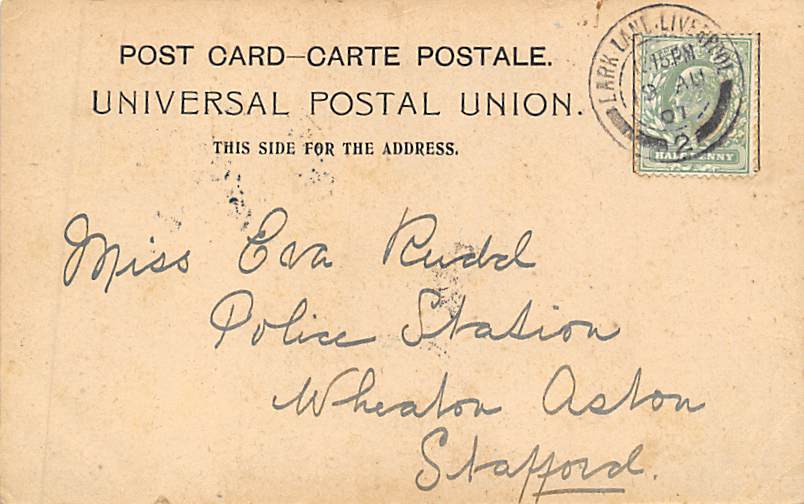 POST CARD—CARTE POSTALE.
UNIVERSAL POSTAL UNION.
THIS SIDE FOR THE ADDRESS.
LARK LANE. LIVERPOOL
15PM
9 AU
07
2
HALFPENNY
Miss Eva Rudd
Police Station
Wheaton Aston
Stafford.